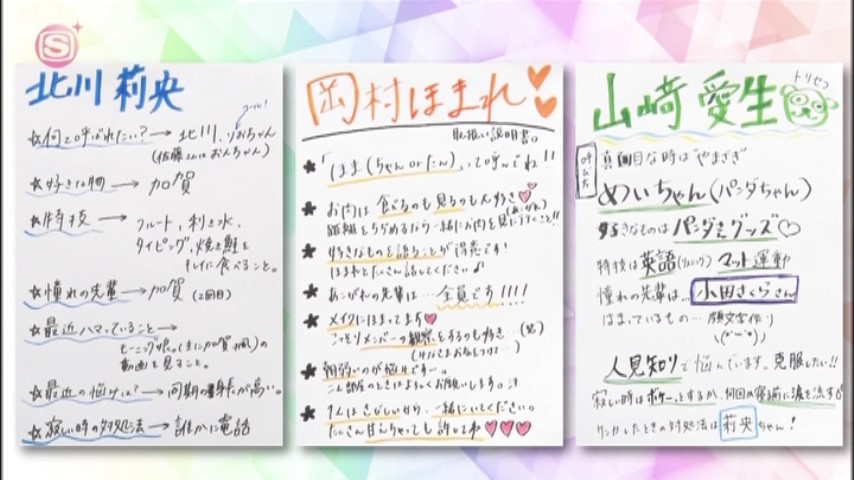 S
北川 莉央
コール!
☆何て呼ばれたい?→北川、りおちゃん
(佐藤さんはおんちゃん)
☆好きな物→加賀
☆特技→フルート、利き水、
タイピング、焼き鮭を
キレイに食べること。
☆憧れの先輩→加賀(2回目)
☆最近ハマっていること→
モーニング娘。(主に加賀楓)の
動画を見ること。
☆最近の悩みは?→同期の身長が高い。
☆寂しい時の対処法→誰かに電話
岡村ほまれ
取扱い説明書。
★「ほま(ちゃんorたん)」って呼んでね!!
★お肉は、食べるのも見るのも大好き
距離をちぢめるなら一緒にお肉を見に行くこと!!
★好きなものを語ることが得意です!
ほまれとたくさん話してください♪
★あこがれの先輩は…全員です!!!!
★メイクにはまってます
こっそりメンバーの観察をするのも好き…(笑)
★朝弱いのが悩みですー。
こん部屋のときはよろしくお願いします。
★1人はさびしいから、一緒にいてください。
たくさん甘えちゃっても許してね
山﨑 愛生
トリセツ
呼び方
真面目な時は"やまざき"
めいちゃん(パンダちゃん)
好きなものはパンダさんグッズ♡
特技は英語(リスニング) マット運動
憧れの先輩は…小田さくらさん
はまっているもの…顔文字作り
人見知りで悩んでいます。克服したい!!
寂しい時はボケーっとするか、何回か寝る前に涙を流す
ケンカしたときの対処法は莉央ちゃん!